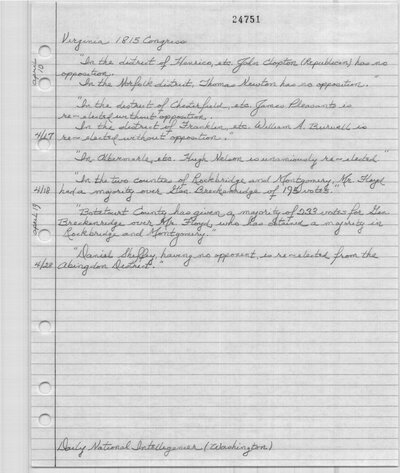 24751
Virginia 1815 Congress
April 15
"In the district of Henrico, etc. John Clopton (Republican) has no
opposition.
In the Norfolk district, Thomas Newton has no opposition."
"In the district of Chesterfield, etc. James Pleasants is
re-elected without opposition.
4/17
In the district of Franklin, etc. William A. Burwell is
re-elected without opposition."
"In Albemarle, etc. Hugh Nelson is unanimously re-elected."
"In the two counties of Rockbridge and Montgomery, Mr. Floyd
4/18
had a majority over Gen. Breckenridge of 195 votes."
April 19
"Botetourt County has given a majority of 233 votes for Gen.
Breckenridge over Mr. Floyd, who has obtained a majority in
Rockbridge and Montgomery."
"Daniel Sheffey, having no opponent, is re-elected from the
4/28
Abingdon District."
Daily National Intelligencer (Washington)